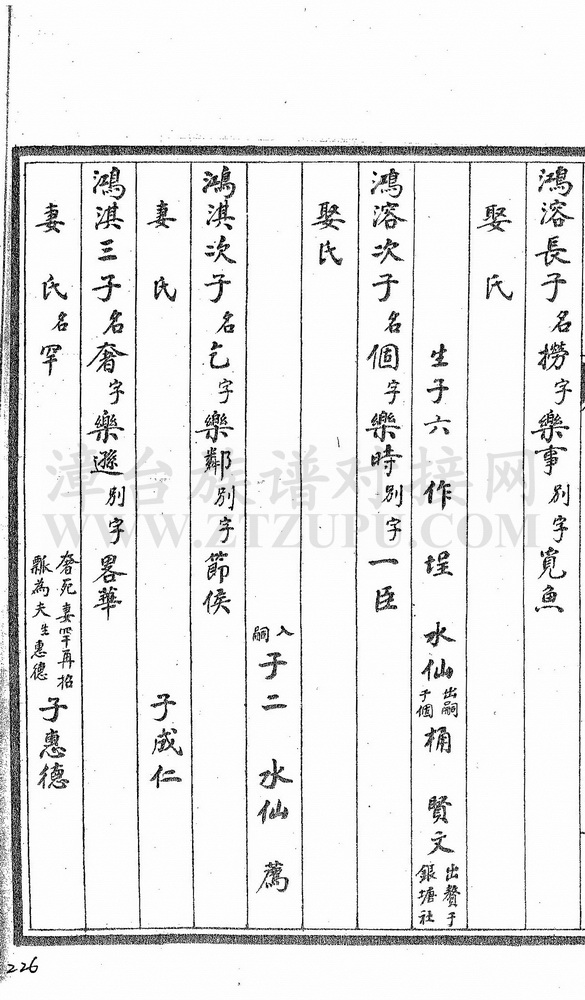 鴻溶長子名撈字樂事別字寬魚
娶氏
生子六 作 埕 水仙出嗣于個 桶 賢文出贅于銀塘社
鴻溶次子名個字樂時別字一臣
娶氏
入嗣子二 水仙 薦
鴻淇次子名乞字樂鄰別字節侯
妻氏 子成仁
鴻淇三子名奢字樂遜別字畧華
妻氏名罕 奢死妻罕再招 為夫生惠德 子惠德
漳台族谱对接网
WWW.ZTZUPU.COM
226